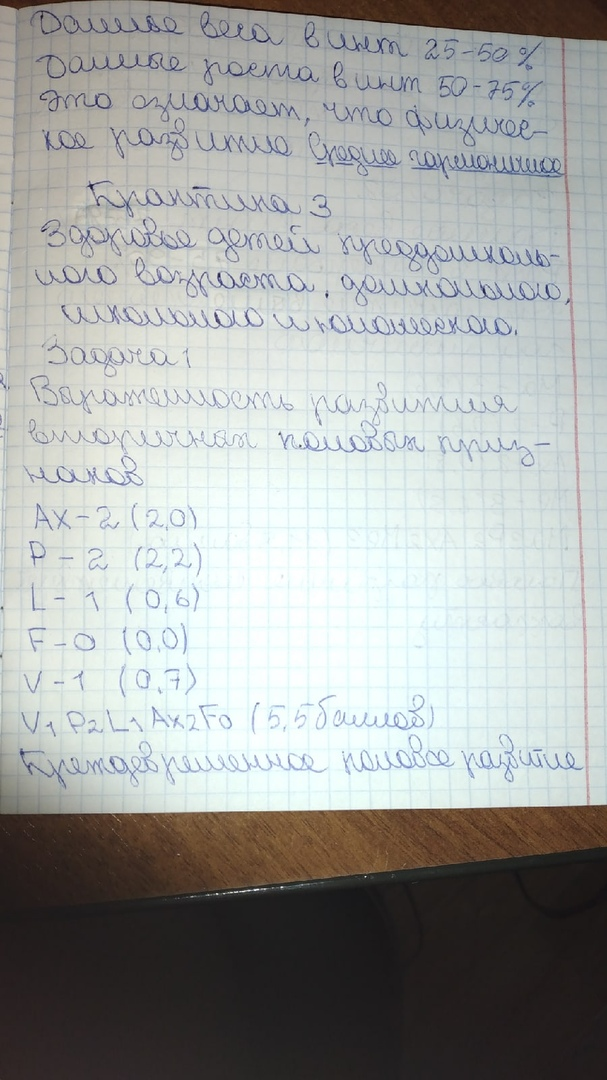 Данные веса в инт 25-50%
Данные роста в инт 50-75%
Это означает, что физичес-
кое развитие среднее гармоничное
Практика 3
Здоровье детей преддошколь-
ного возраста, дошкольного,
школьного и юношеского.
Задача 1
Выраженность развития
вторичных половых приз-
наков
Ax - 2 (2,0)
P - 2 (2,2)
L - 1 (0,6)
F - 0 (0,0)
V - 1 (0,7)
V1 P2 L1 Ax2 F0 (5,5 баллов)
Преждевременное половое развитие